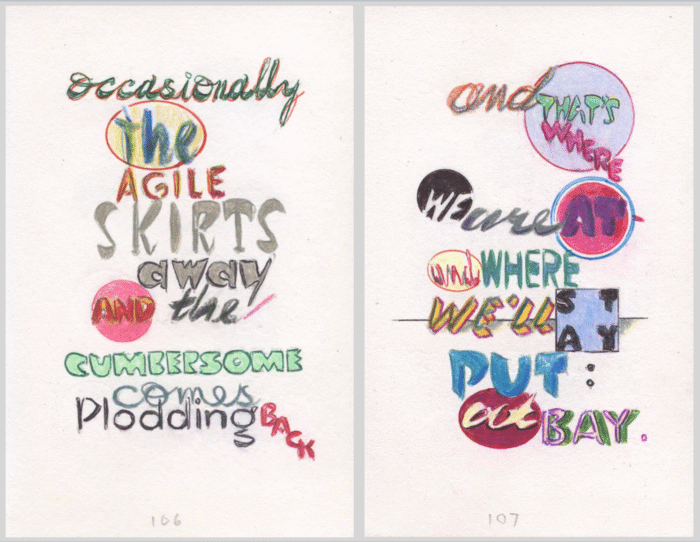 occasionally
the
AGILE
SKIRTS
away
AND the
CUMBERSOME
comes
Plodding BACK
106
and THAT'S
WHERE
WE are AT
and WHERE
WE'LL STAY
PUT:
at BAY.
107